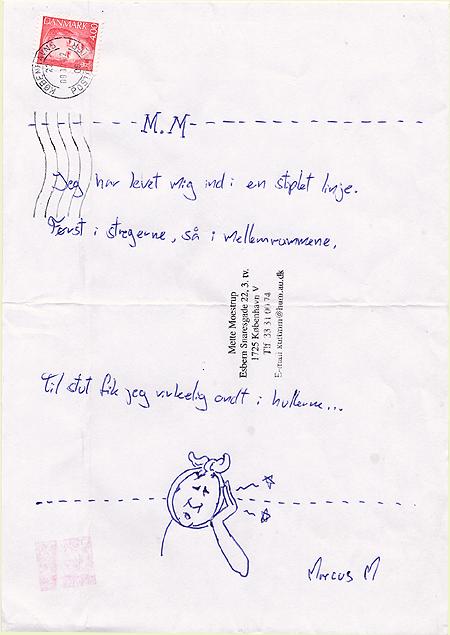 DANMARK 4.00
KØBENHAVNS
POST
M.M
Jeg har levet mig ind i en stiplet linje.
Først i stregerne, så i mellemrummene.
Mette Moestrup
Esbern Snaresgade 22, 3. tv.
1725 København V
Tlf. 33 31 00 74
Til slut fik jeg virkelig ondt i hullerne...
Marcus M